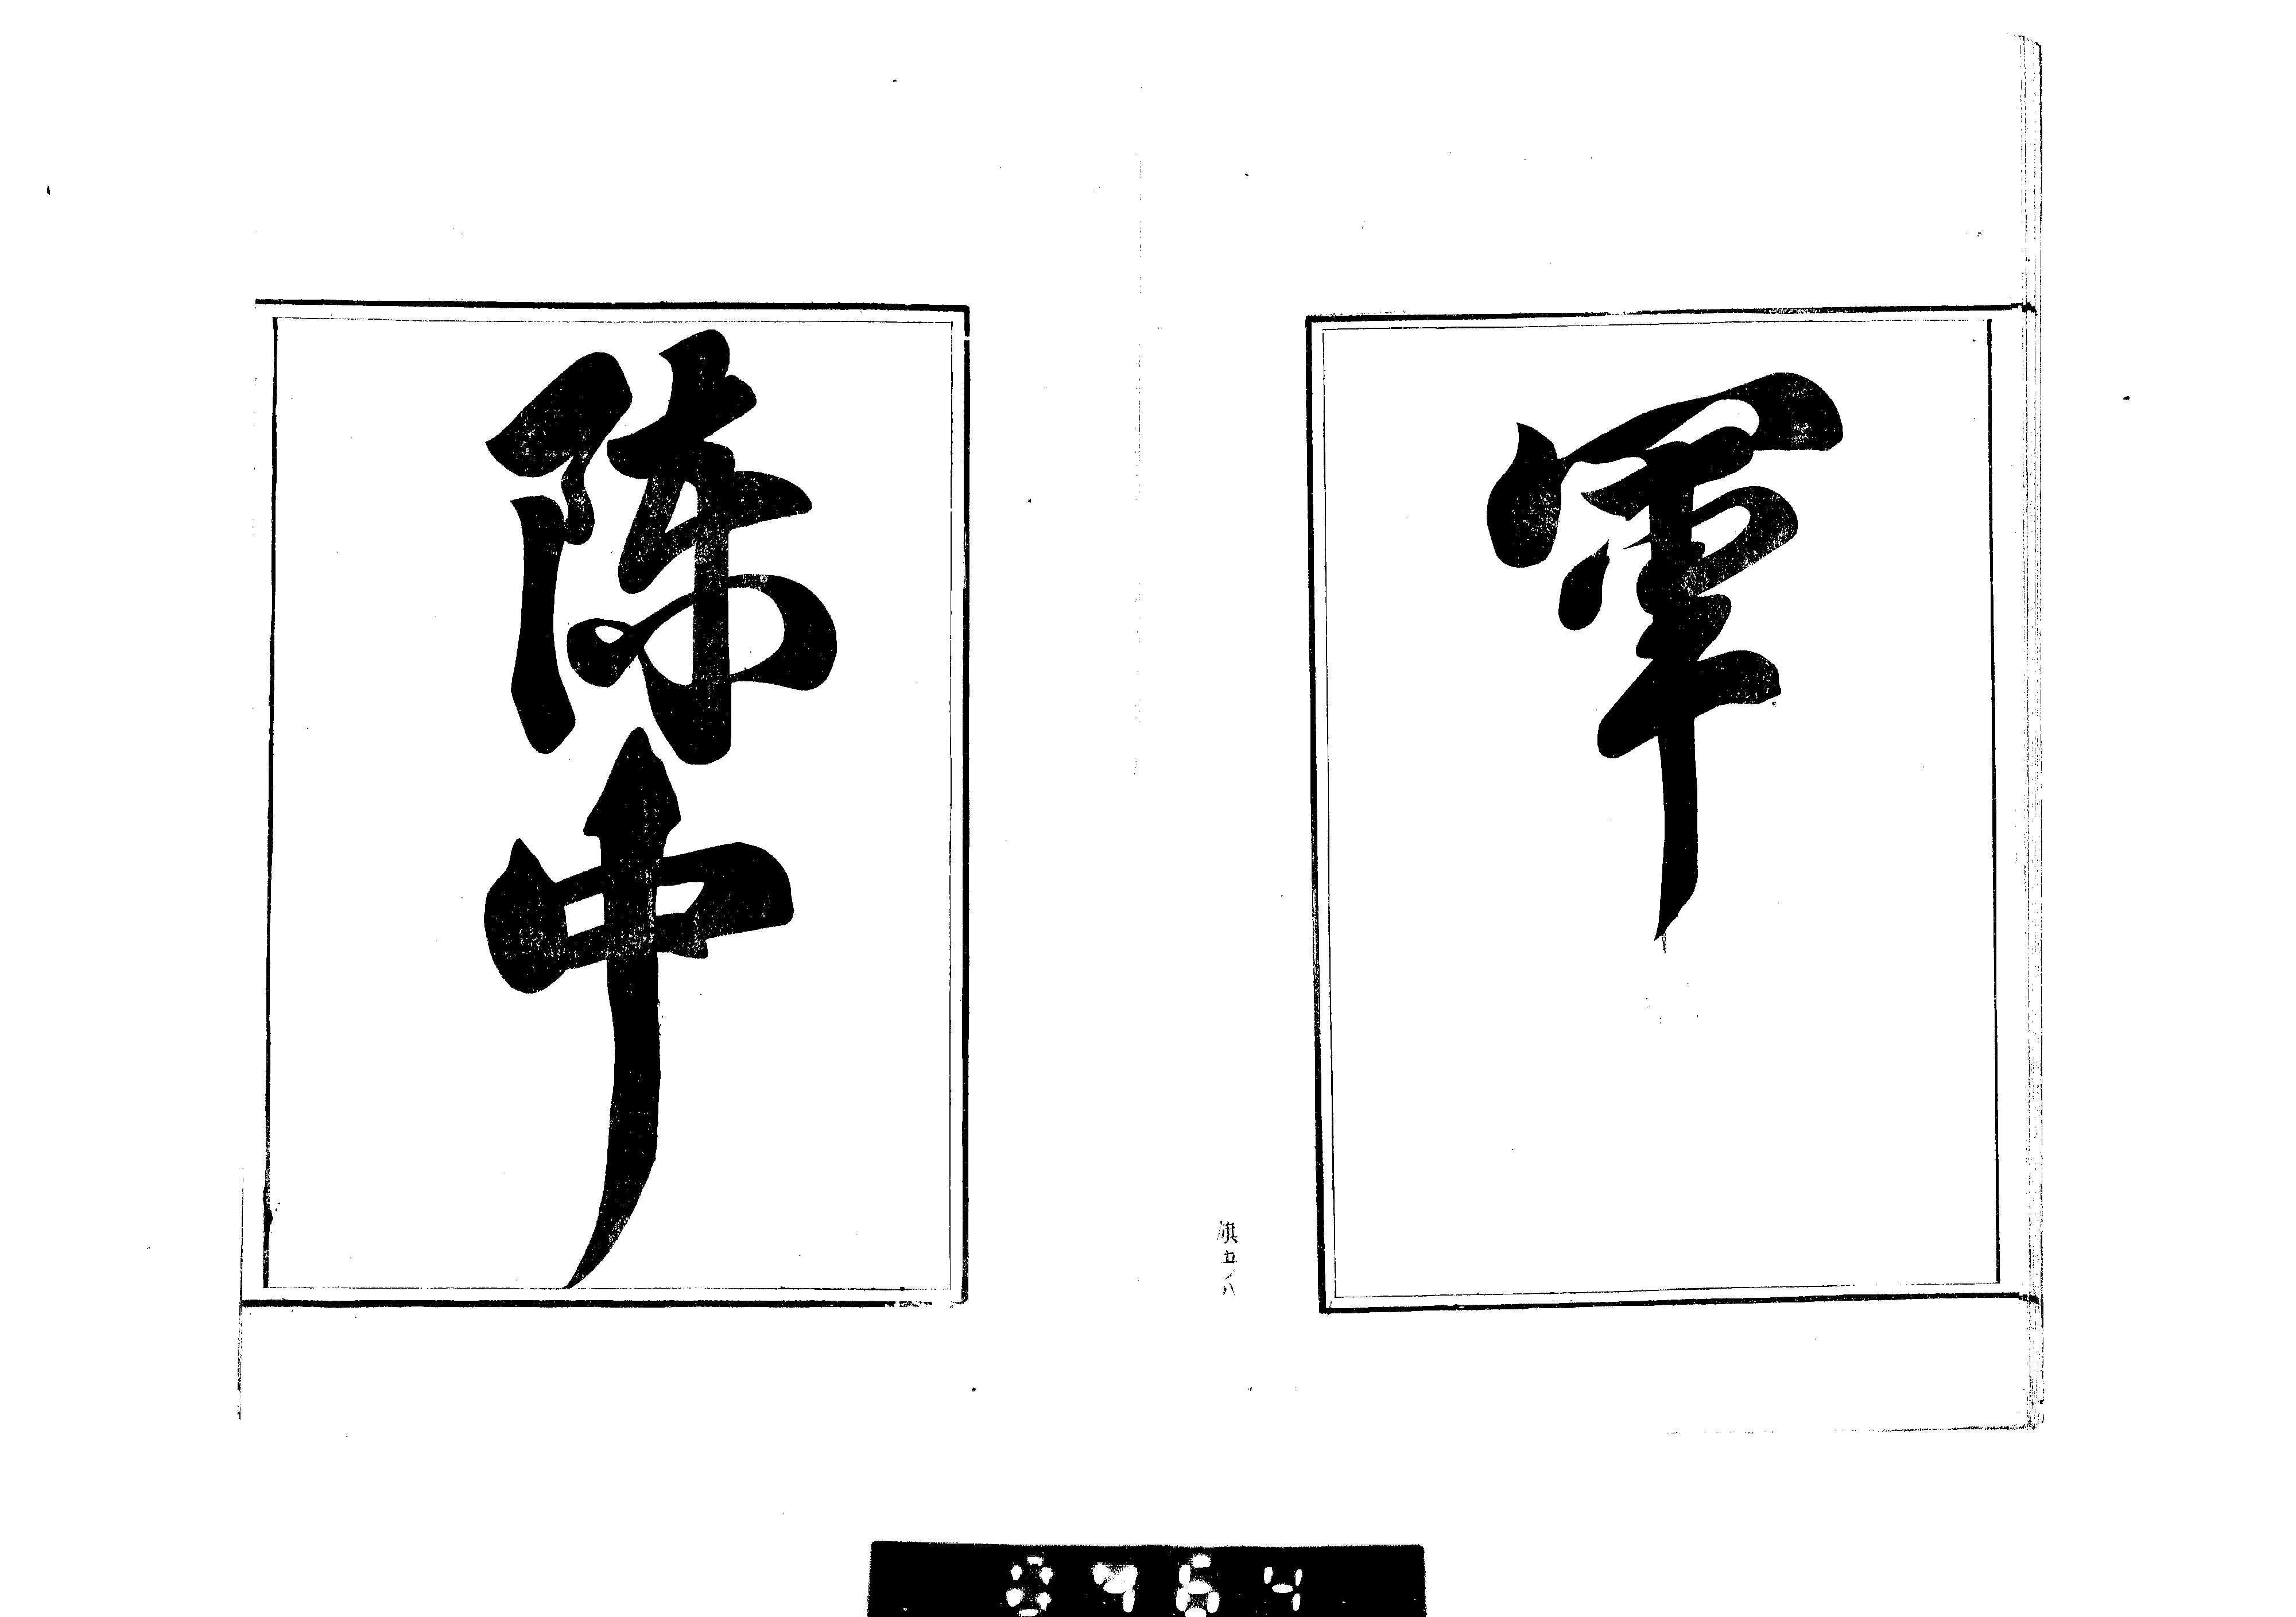 軍
旗五八
陣中